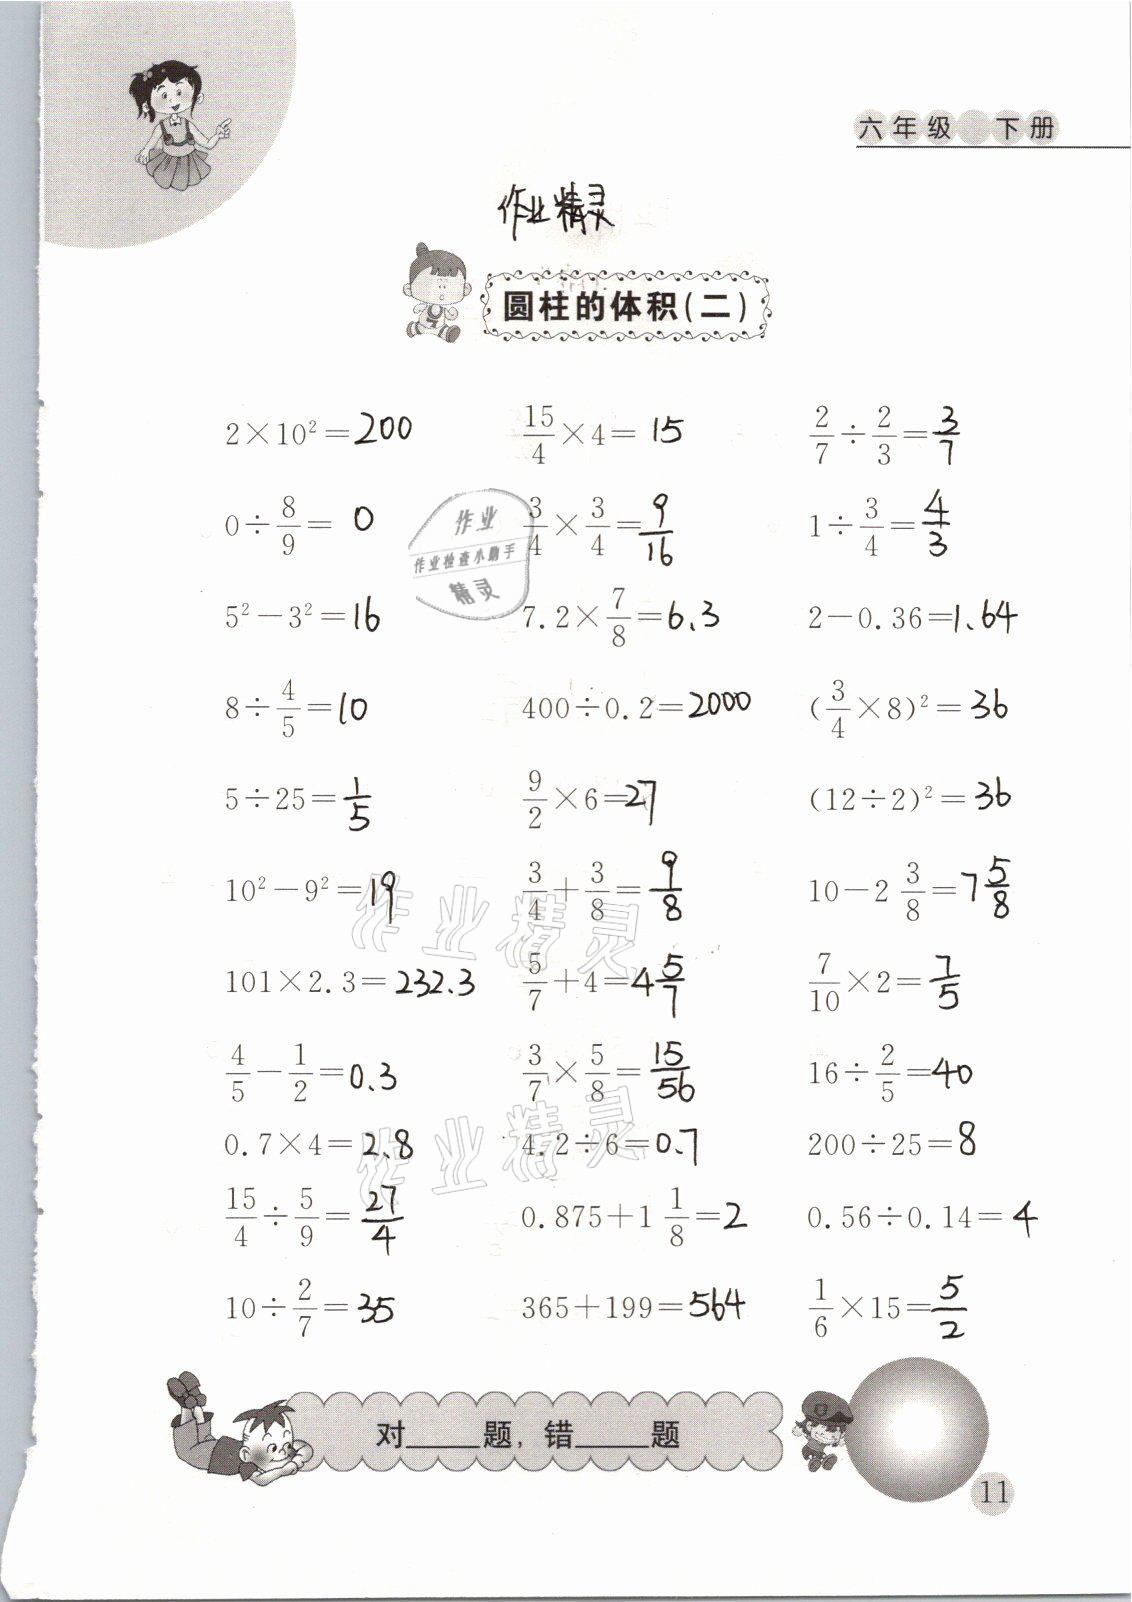 六年级 下册
作业精灵
圆柱的体积(二)
2×10²=200 15/4×4=15 2/7÷2/3=3/7
0÷8/9=0 3/4×3/4=9/16 1÷3/4=4/3
作业
作业检查小助手
精灵
5²-3²=16 7.2×7/8=6.3 2-0.36=1.64
8÷4/5=10 400÷0.2=2000 (3/4×8)²=36
5÷25=1/5 9/2×6=27 (12÷2)²=36
10²-9²=19 3/4+3/8=9/8 10-2 3/8=7 5/8
作业精灵
101×2.3=232.3 5/7+4=4 5/7 7/10×2=7/5
4/5-1/2=0.3 3/7×5/8=15/56 16÷2/5=40
0.7×4=2.8 4.2÷6=0.7 200÷25=8
作业精灵
15/4÷5/9=27/4 0.875+1 1/8=2 0.56÷0.14=4
10÷2/7=35 365+199=564 1/6×15=5/2
对____题,错____题
11